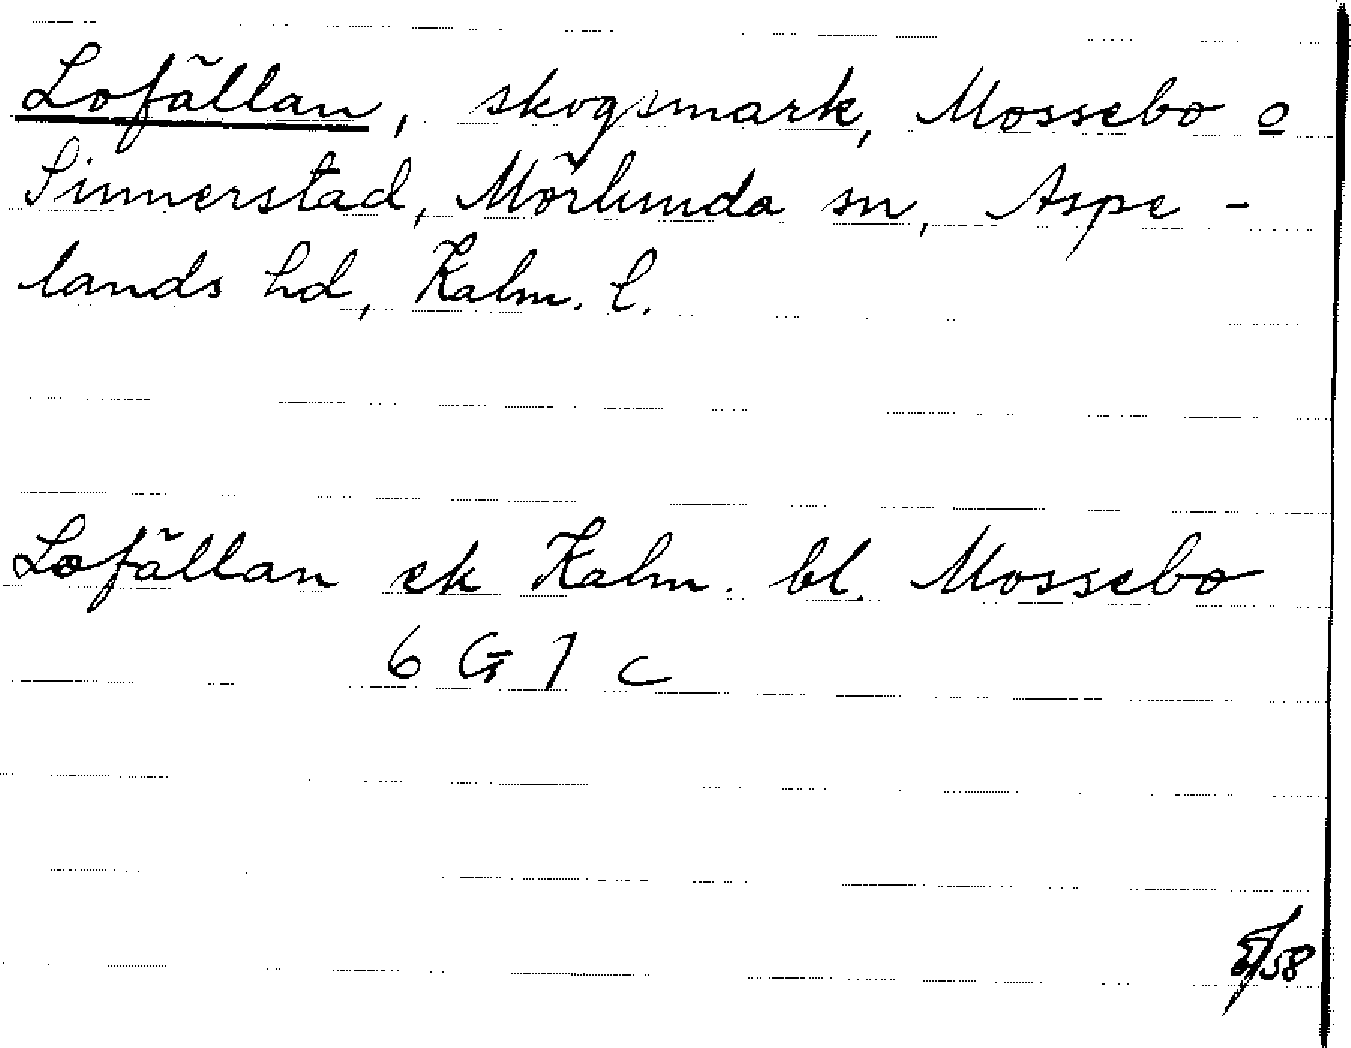 Lofällan, skogsmark, Mossebo o
Sinnerstad, Mörlunda sn, Aspe-
lands hd, Kalm. l.
Lofällan ek Kalm. bl. Mossebo
6 G 7 c
/58